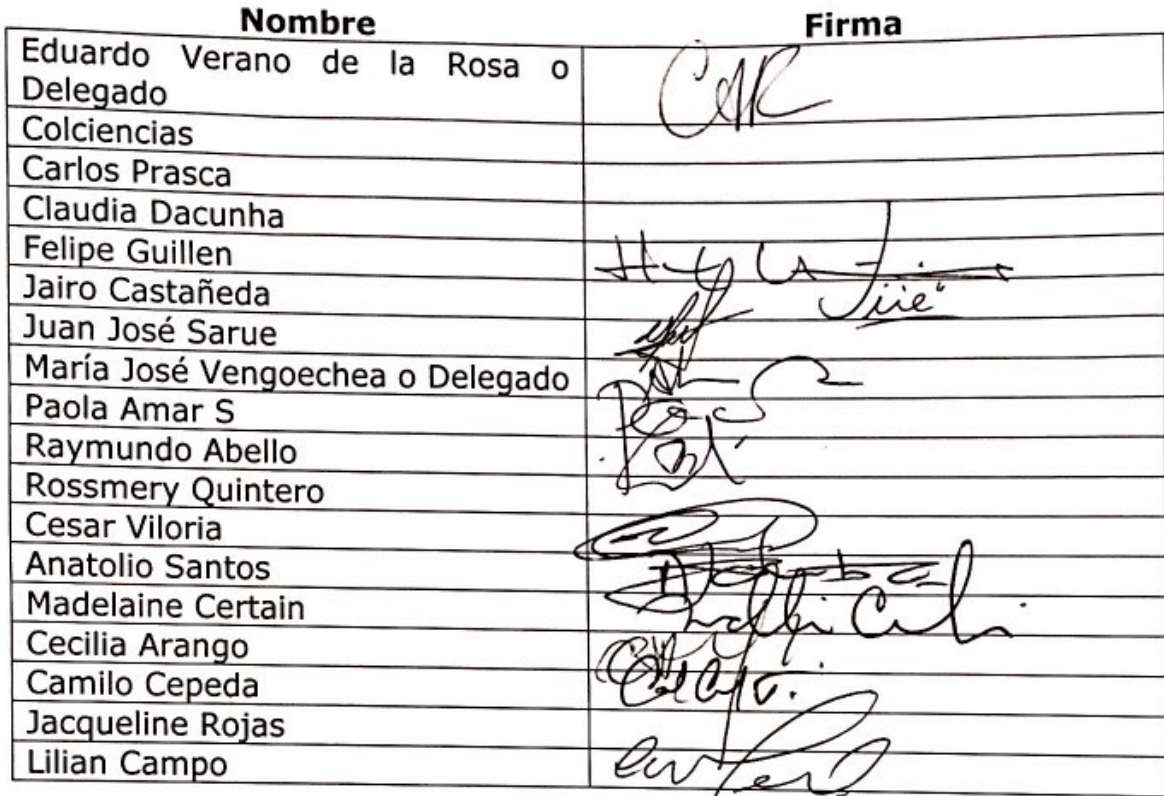 Nombre Firma
Eduardo Verano de la Rosa o
Delegado
Colciencias
Carlos Prasca
Claudia Dacunha
Felipe Guillen
Jairo Castañeda
Juan José Sarue
María José Vengoechea o Delegado
Paola Amar S
Raymundo Abello
Rossmery Quintero
Cesar Viloria
Anatolio Santos
Madelaine Certain
Cecilia Arango
Camilo Cepeda
Jacqueline Rojas
Lilian Campo